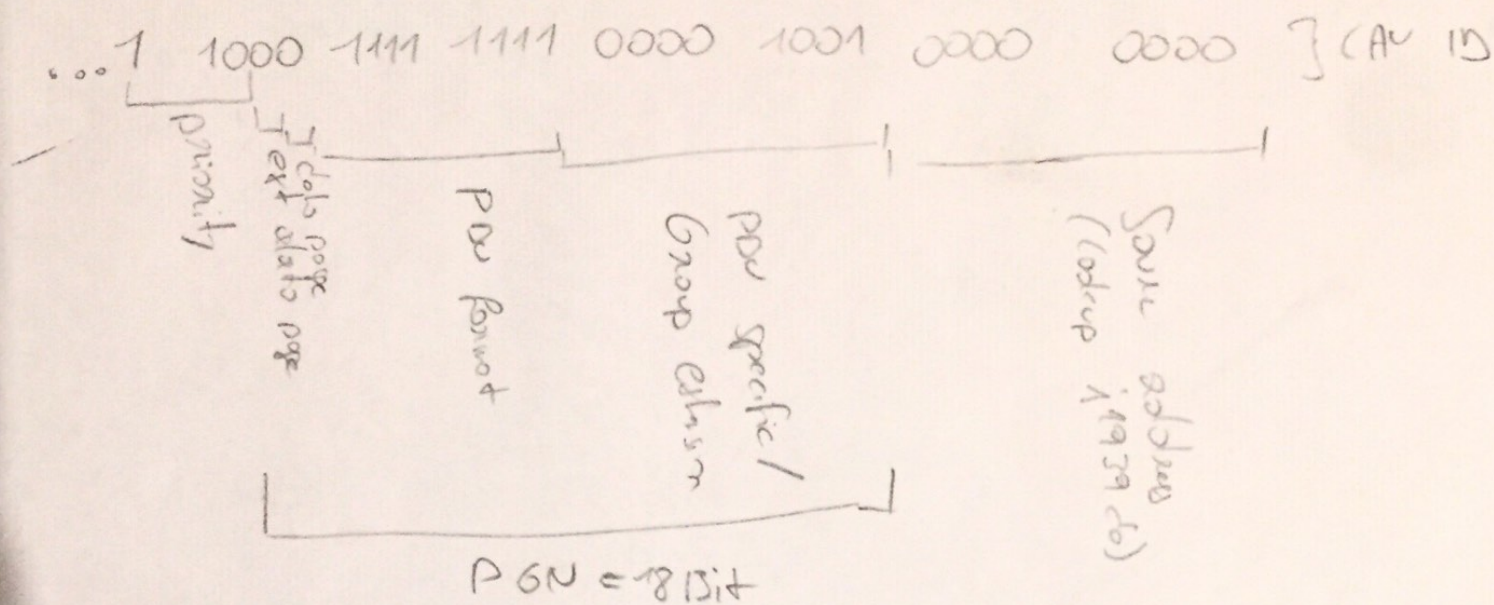 ...1 1000 1111 1111 0000 1001 0000 0000 ] (AN ID
priority
Ext data page
data page
PDU format
PDU specific/
Group
Source address
(lookup j1939 do)
PGN = 18 Bit